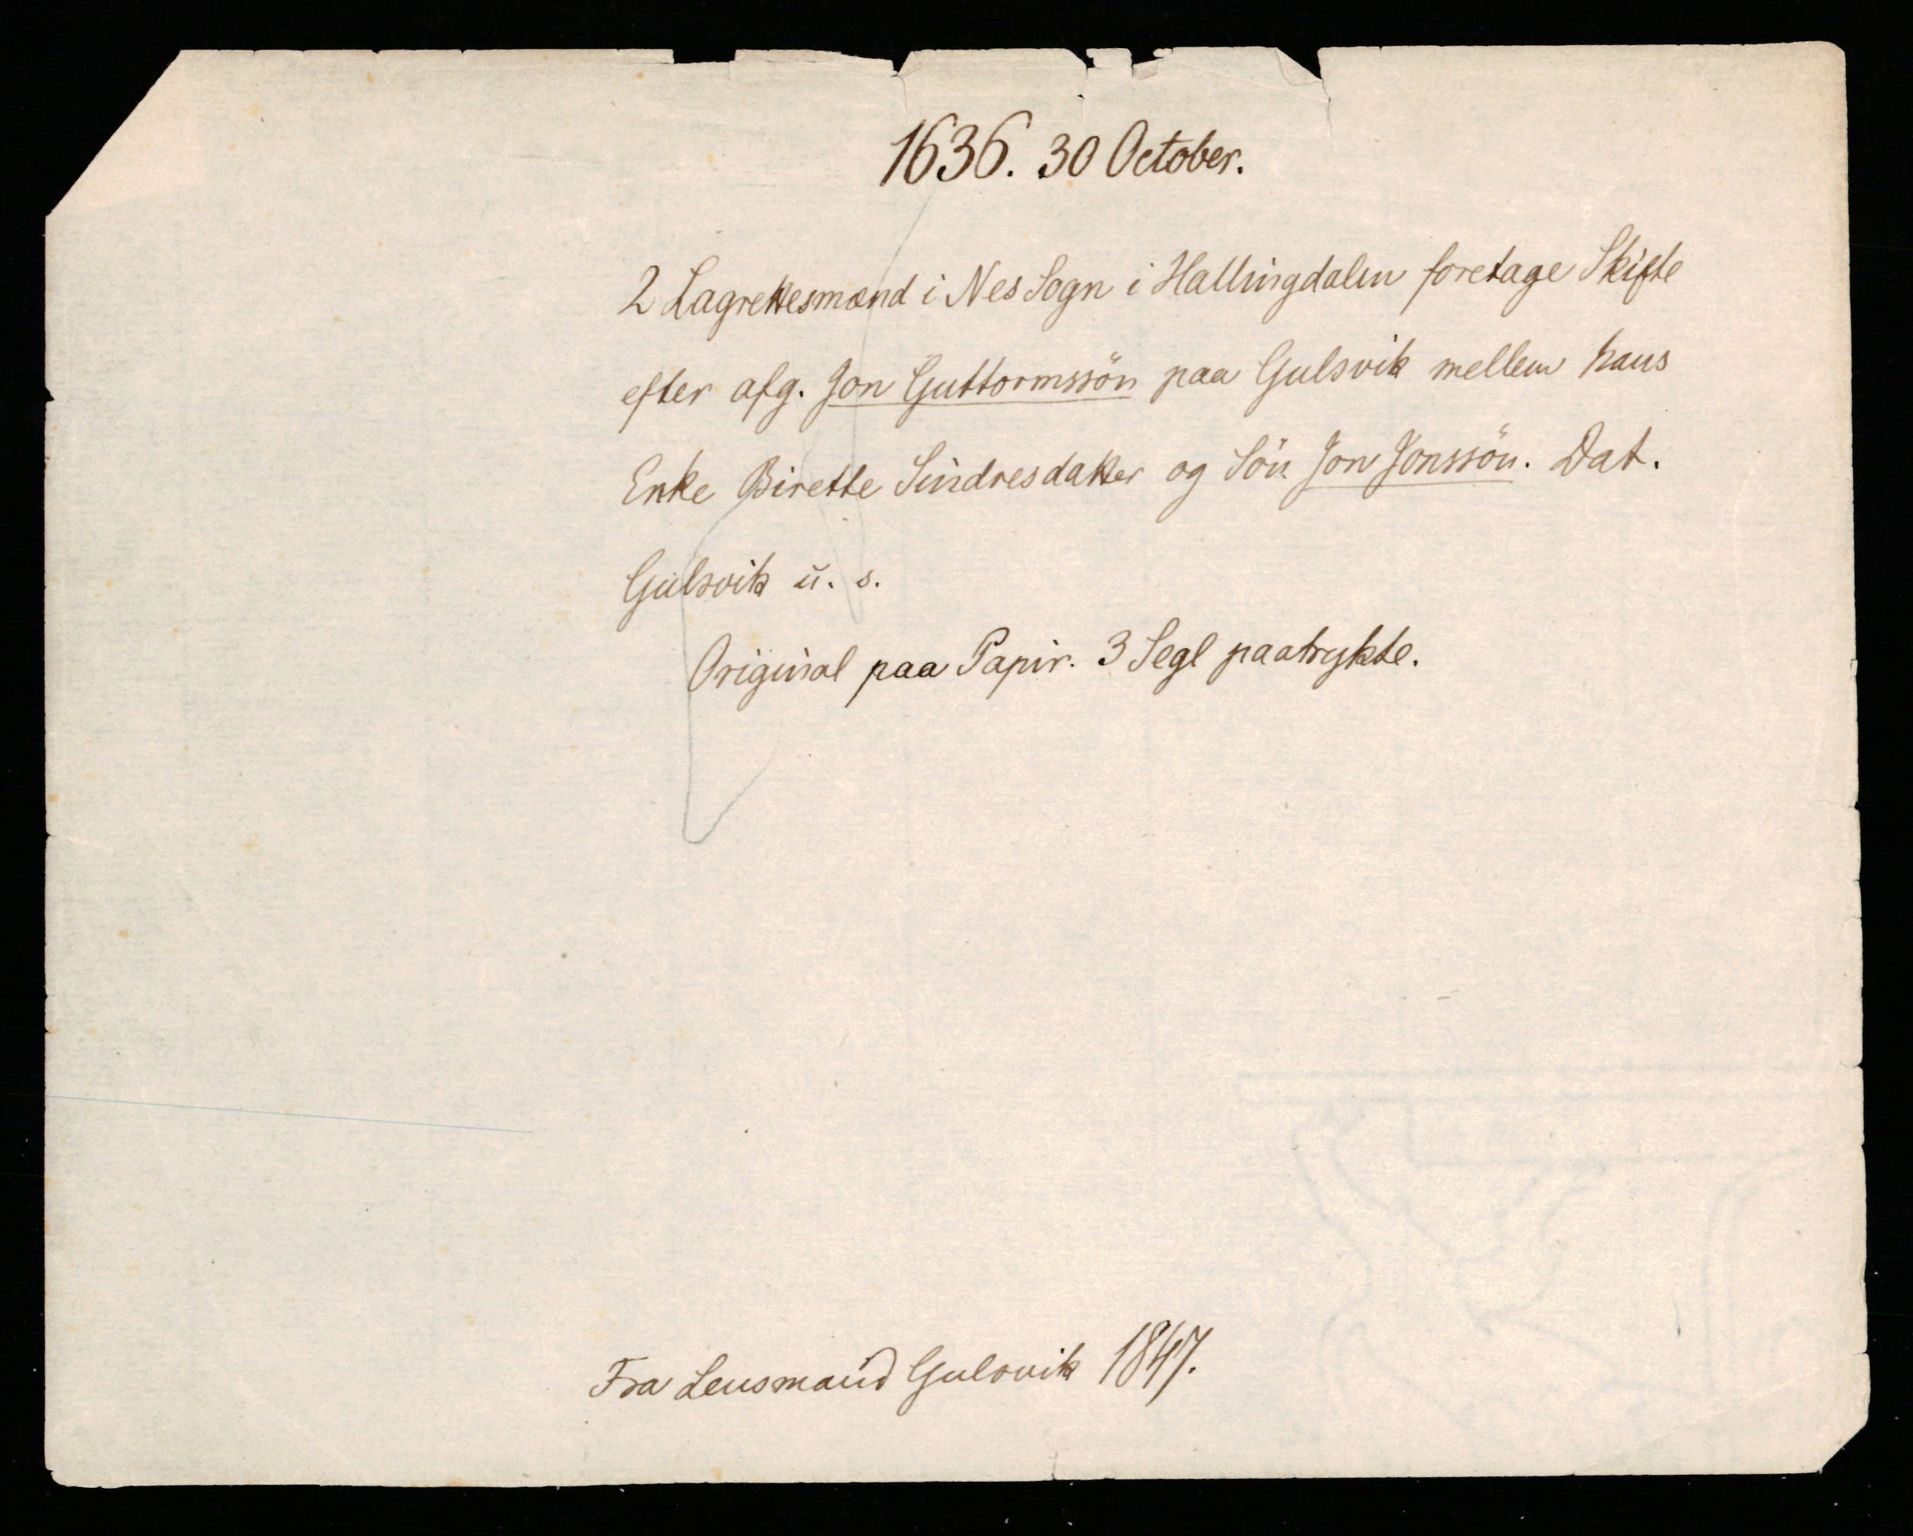 1636. 30 October.
2 Lagrettesmænd i Nes Sogn i Hallingdalen foretage Skifte
efter afg. Jon Guttormssön paa Gulsvik mellem hans
Enke Birette Sindresdatter og Sön Jon Jonssön. Dat.
Gulsvik u. s.
Original paa Papir. 3 Segl paatrykte.
Fra Lensmand Gulsvik 1847.